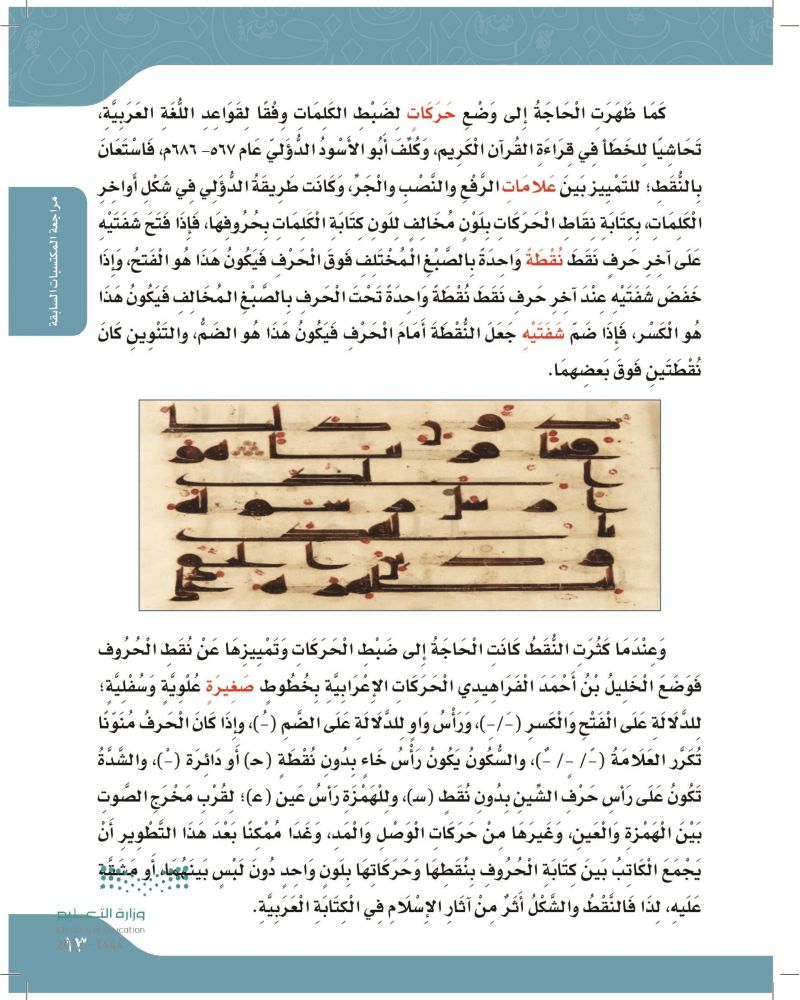 كَمَا ظَهَرَتِ الْحَاجَةُ إلى وَضْعِ حَرَكَاتٍ لضَبْطِ الكَلِمَاتِ وِفْقًا لقَوَاعِدِ اللُّغَةِ العَرَبِيَّةِ،
تَحَاشيًا للخطَأ في قرَاءَةِ القُرآن الْكَرِيم، وَكُلِّفَ أَبُو الأَسْودُ الدُّؤَليّ عَام ٥٦٧– ٦٨٦م، فَاسْتَعانَ
بِالنُّقَطِ؛ للتَمْيِيز بَينَ عَلامَاتِ الرَّفْعِ والنَّصْبِ والْجَرِّ، وَكَانَت طَرِيقَةُ الدُّؤَلي في شَكْلِ أَواخِرِ
الْكَلمَاتِ، بِكِتَابَة نِقَاط الْحَرَكَات بِلَوْنٍ مُخَالفٍ للَون كِتَابَة الْكَلمات بِحُروفهَا، فَإذَا فَتَحَ شَفَتَيْهِ
عَلَى آخِرِ حَرفٍ نَقَطَ نُقْطَةً واحِدَةً بالصِّبْغِ الْمُخْتَلِفِ فَوقَ الْحَرْفِ فَيَكُونُ هَذَا هُو الْفَتحُ، وَإذَا
خَفَضَ شَفَتَيْهِ عِنْدَ آخرِ حَرفٍ نَقَطَ نُقْطَةً وَاحدَةً تَحْتَ الْحَرفِ بِالصِّبْغِ المُخَالفِ فَيَكُونُ هَذَا
هُو الْكَسْر، فَإذَا ضَمّ شَفَتَيْهِ جَعَلَ النُّقْطَةَ أَمَامَ الْحَرْفِ فَيَكُونُ هَذَا هُو الضَمُّ، والتَنْوِين كَانَ
نُقْطَتَينِ فَوقَ بَعضِهِمَا.
وَعِنْدَمَا كَثُرَت النُّقَطُ كَانَتِ الْحَاجَةُ إلى ضَبْطِ الْحَرَكَاتِ وَتَمْيِيزِهَا عَنْ نُقَطِ الْحُرُوف
فَوَضَعَ الْخَلِيلُ بْنُ أَحْمَدَ الْفَرَاهِيدي الْحَرَكَاتِ الإعْرَابِيَّةَ بِخُطُوطٍ صَغِيرَةٍ عُلْوِيَّةٍ وَسُفْلِيَّةٍ؛
للدَّلَالَةِ عَلَى الْفَتْحِ وَالْكَسرِ (ـَ/ـِ)، وَرَأْسُ وَاوٍ للدَّلَالَةِ عَلَى الضَم (ـُ)، وإذا كَانَ الْحَرفُ مُنَوّنًا
تُكَرَّر العَلَامَةُ (ـً/ ـٍ/ ـٌ)، والسُّكُونُ يَكُونُ رَأْسُ خَاءٍ بِدُونِ نُقْطَةٍ (حـ) أَو دَائِرَة (ـْ)، والشَّدَّةُ
تَكُونُ عَلَى رَأسِ حَرْفِ الشِّينِ بِدُونِ نُقَطٍ (سـ)، وللْهَمْزَةِ رَأسُ عَين (عـ)؛ لِقُرْبِ مَخْرَجِ الصَّوتِ
بَيْنَ الْهَمْزة والْعَينِ، وَغَيرَهَا مِنْ حَرَكَاتِ الْوَصْلِ والْمَد، وَغَدَا مُمْكِنًا بَعْدَ هَذَا التَّطْوِيرِ أَنْ
يَجْمَعَ الْكَاتبُ بَينَ كتَابَة الْحُرُوفِ بِنُقَطهَا وَحَرَكَاتِهَا بِلَونٍ وَاحِدٍ دُونَ لَبْسٍ بَينَهُمَا، أَو مَشَقَّةٍ
عَلَيهِ، لِذَا فَالنَّقْطُ والشَّكْلُ أَثَرٌ مِنْ آثارِ الإسْلَامِ في الْكِتَابَةِ الْعَرَبِيَّةِ.
مراجعة المكتسبات السابقة
وزارة التعليم
Ministry of Education
١٣
1444